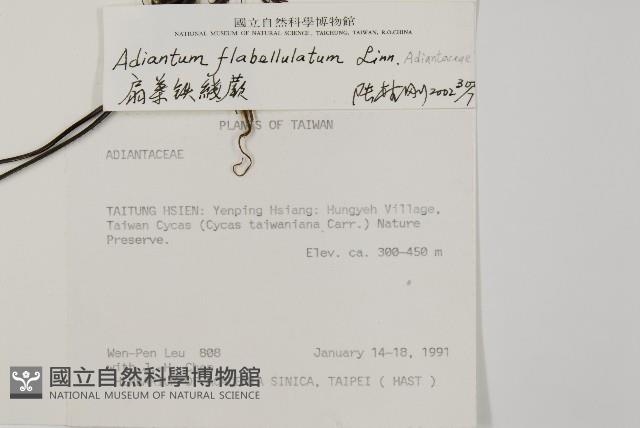 國立自然科學博物館
NATIONAL MUSEUM OF NATURAL SCIENCE, TAICHUNG, TAIWAN, R.O.CHINA
Adiantum flabellulatum Linn. Adiantaceae
扇葉铁线蕨 2002
PLANTS OF TAIWAN
ADIANTACEAE
TAITUNG HSIEN: Yenping Hsiang: Hungyeh Village,
Taiwan Cycas (Cycas taiwaniana Carr.) Nature
Preserve.
Elev. ca. 300-450 m
Wen-Pen Leu 808 January 14-18, 1991
with
SINICA, TAIPEI ( HAST )
國立自然科學博物館
NATIONAL MUSEUM OF NATURAL SCIENCE